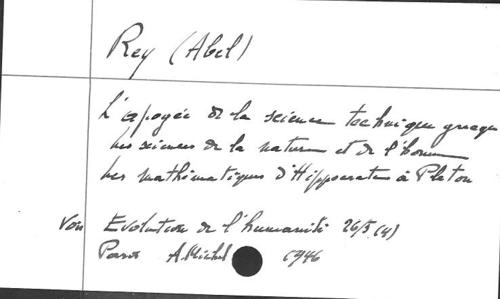 Rey (Abel)
L'apogée de la science technique grecque
Les sciences de la nature et de l'homme
Les mathématiques d'Hippocrate à Platon
Voir Evolution de l'humanité 26/5 (4)
Paris A. Michel 1946